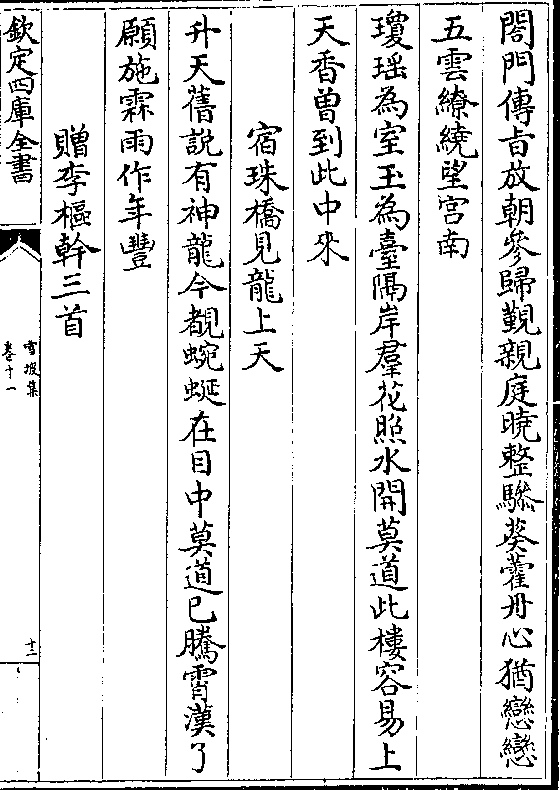 閤門傳旨放朝參歸覲親庭曉整驂葵藿丹心猶戀戀
五雲繚繞望宮南
瓊瑶為室玉為臺隔岸羣花照水開莫道此樓容易上
天香曽到此中來
宿珠橋見龍上天
升天舊說有神龍今覩蜿蜒在目中莫道已騰霄漢了
願施霖雨作年豐
贈李樞幹三首
欽定四庫全書
雪坡集
卷十一
十二